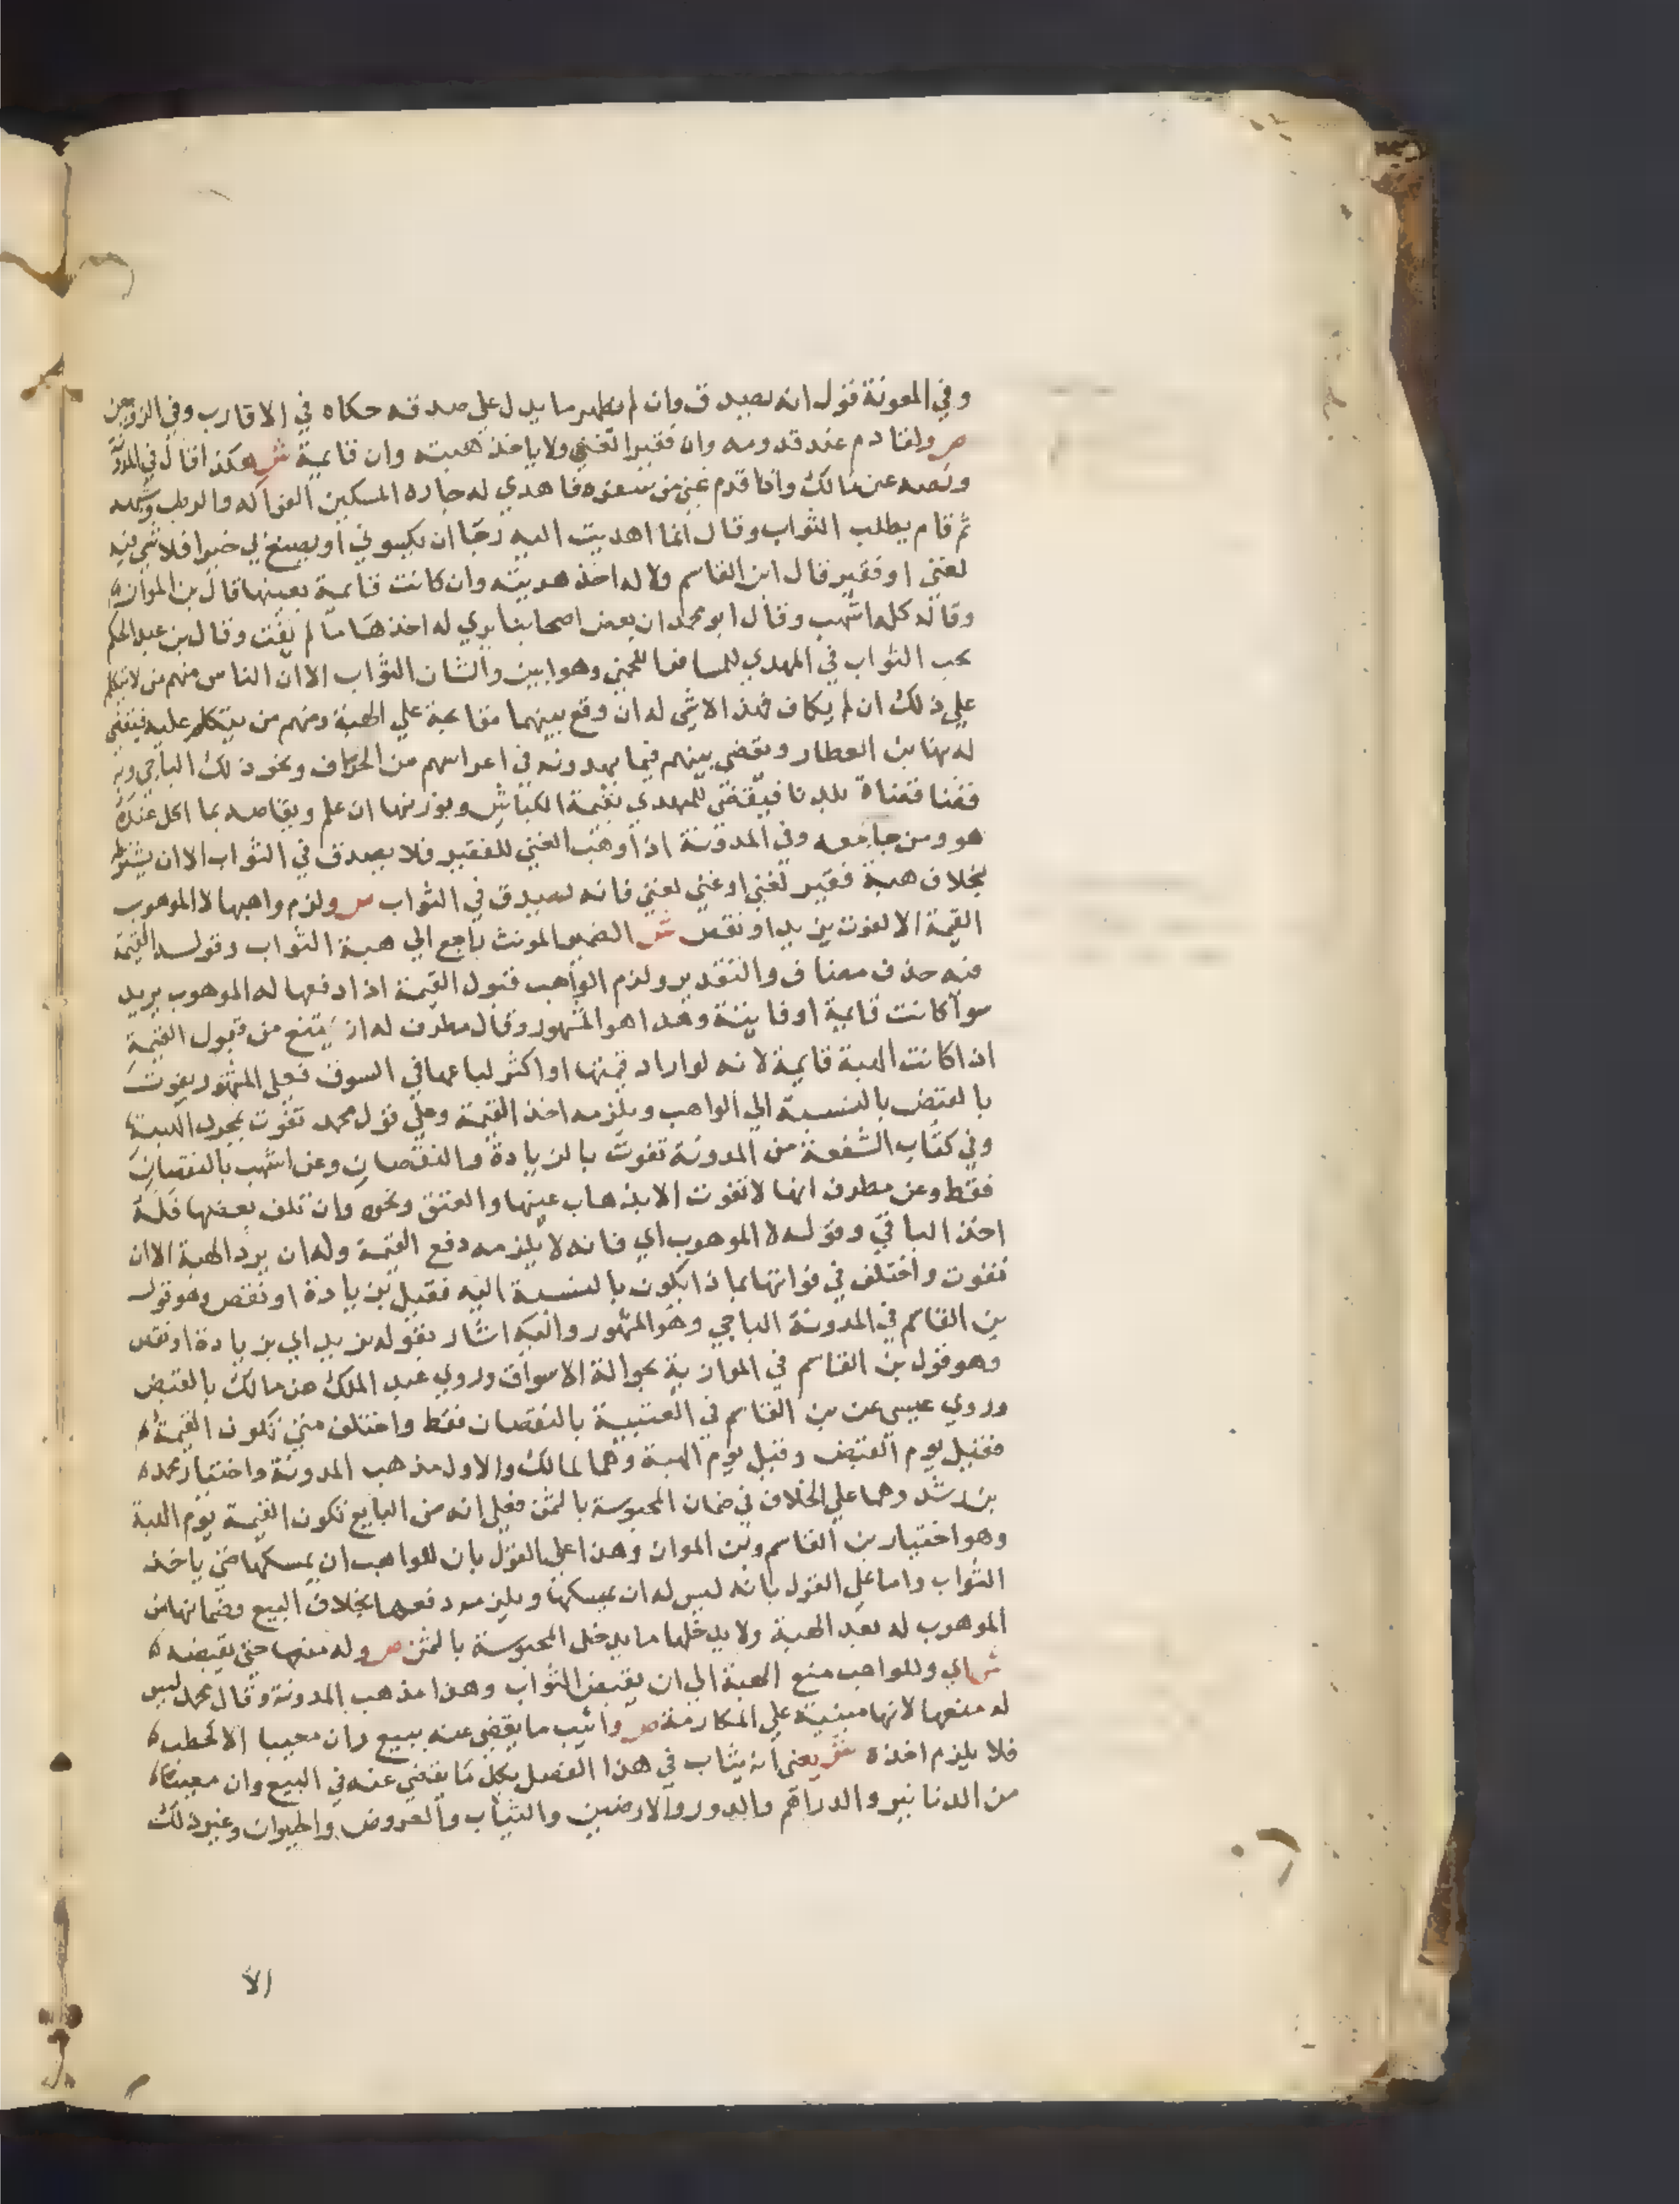 وفي المعونة قول انه يصدق وان لم يظهر ما يدل علي صدقه حكاه في الاقارب وفي الزوجين
ص ولقادم عند قدومه وان فقيرا لغني ولا ياخذ هبته وان قايمة ش هكذا قال في المدونة
ونصه عن مالك واذا قدم غني من سفره فاهدي له جاره المسكين الفواكه والرطب وشبهه
ثم قام يطلب الثواب وقال انما اهديت اليه رجا ان يكسوني او يصنع لي خيرا فلا شي فيه
لغني او فقير قال ابن القاسم ولا له اخذ هديته وان كانت قايمة بعينها قال بن المواز
وقاله كله اشهب وقال ابو محمد ان بعض اصحابنا يري له اخذها ما لم يفت وقال بن عبد الحكم
يجب الثواب في المهدي للمسافر اللخمي وهو ابين والشان الثواب الا ان الناس منهم من لا يتكلم
علي ذلك ان لم يكاف فهذا لا شي له ان وقع بينهما مقابحة علي الهبة ومنهم من يتكلم عليه فيقضي
له بها بن العطار ويقضي بينهم فيما يهدونه في اعراسهم من الخراف ونحو ذلك الباجي وبه
قضا قضاة بلدنا فيقضي للمهدي بقيمة الكباش وبوزنها ان علم ويقاصه بما اكل عنده
هو ومن جا معه وفي المدونة اذا وهب الغني للفقير فلا يصدق في الثواب الا ان يشترط
بخلاف هبة فقير لغني او غني لغني فانه يصدق في الثواب ص ولزم واهبها لا الموهوب
القيمة الا لفوت بزيد او نقص ش الضمير المونث راجع الي هبة الثواب وقوله القيمة
فيه حذف مضاف والتقدير ولزم الواهب قبول القيمة اذا دفعها له الموهوب يريد
سوا كانت قايمة او فايتة وهذا هو المشهور وقال مطرف له ان يمتنع من قبول القيمة
اذا كانت الهبة قايمة لانه لو اراد قيمتها او اكثر لباعها في السوق فعلي المشهور يفوت
بالقبض بالنسبة الي الواهب ويلزمه اخذ القيمة وعلي قول محمد تفوت بمجرد الهبة
وفي كتاب الشفعة من المدونة تفوت بالزيادة والنقصان وعن اشهب بالنقصان
فقط وعن مطرف انها لا تفوت الا بذهاب عينها والعتق ونحوه وان تلف بعضها فله
اخذ الباقي وقوله لا الموهوب اي فانه لا يلزمه دفع القيمة وله ان يرد الهبة الا ان
تفوت واختلف في فواتها بماذا يكون بالنسبة اليه فقيل بزيادة او نقص وهو قول
بن القاسم في المدونة الباجي وهو المشهور واليه اشار بقوله بزيد اي بزيادة او نقص
وهو قول بن القاسم في الموازية بحوالة الاسواق وروي عبد الملك عن مالك بالقبض
وروي عيسي عن بن القاسم في العتبية بالنقصان فقط واختلف متي تكون القيمة
فقيل يوم القبض وقيل يوم الهبة وهما لمالك والاول مذهب المدونة واختيار محمد
بن رشد وهما علي الخلاف في ضمان المحبوسة بالثمن فعلي انه من البايع تكون القيمة يوم الهبة
وهو اختيار بن القاسم وبن المواز وهذا علي القول بان للواهب ان يمسكها حتي ياخذ
الثواب واما علي القول بانه ليس له ان يمسكها ويلزمه دفعها بخلاف البيع وضمانها من
الموهوب له بعد الهبة ولا يدخلها ما يدخل المحبوسة بالثمن ص وله منعها حتي يقبضه
ش اي وللواهب منع الهبة الي ان يقبض الثواب وهذا مذهب المدونة وقال محمد ليس
له منعها لانها مبنية علي المكارمة ص واثيب ما يقضي عنه ببيع وان معيبا الا كحطب
فلا يلزم اخذه ش يعني انه يثاب في هذا الفصل بكل ما يقضي عنه في البيع وان معيبا
من الدنانير والدراهم والدور والارضين والثياب والعروض والحيوان وغير ذلك
الا